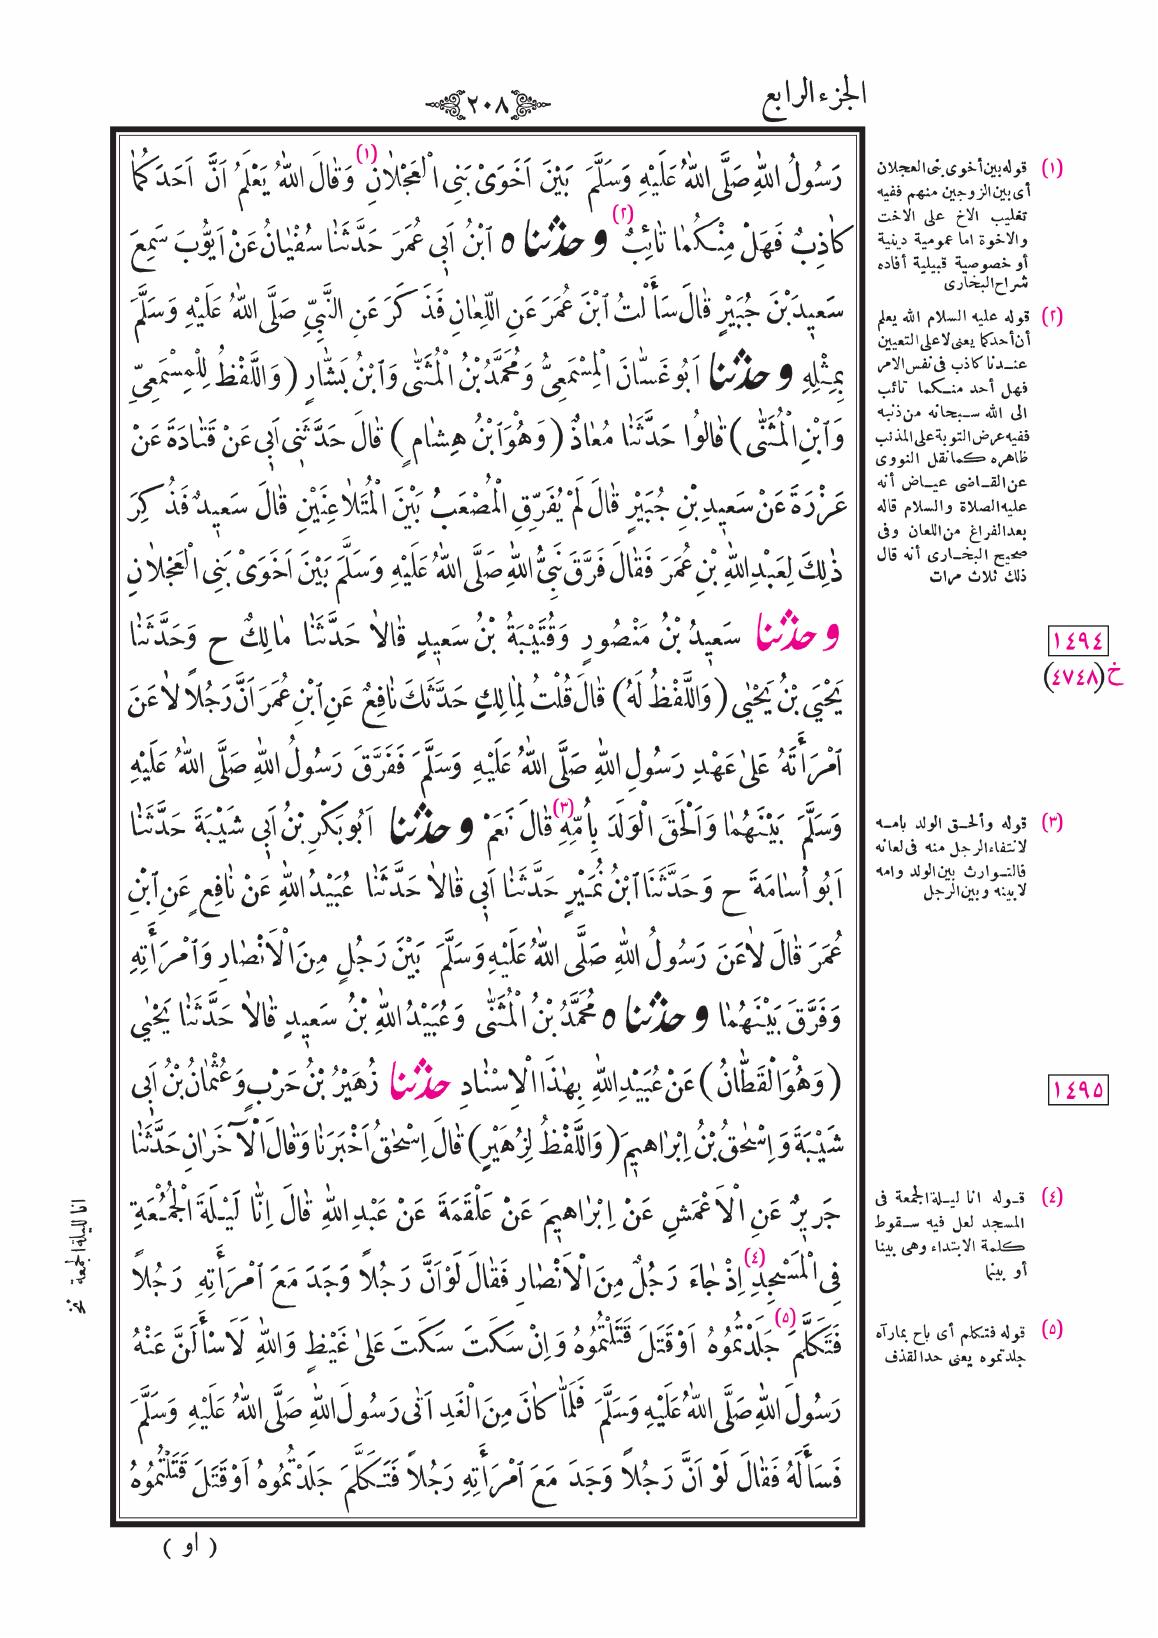 الجزء الرابع
٢٠٨
رَسُولُ اللّٰهِ صَلَّى اللّٰهُ عَلَيْهِ وَسَلَّمَ بَيْنَ اَخَوَىْ بَنِى الْعَجْلَانِ (١) وَقَالَ اللّٰهُ يَعْلَمُ اَنَّ اَحَدَكُمَا
كَاذِبٌ فَهَلْ مِنْكُمَا تَائِبٌ (٢) وحدثنا ٥ ابْنُ اَبِى عُمَرَ حَدَّثَنَا سُفْيَانُ عَنْ اَيُّوبَ سَمِعَ
سَعِيدَ بْنَ جُبَيْرٍ قَالَ سَأَلْتُ ابْنَ عُمَرَ عَنِ اللِّعَانِ فَذَكَرَ عَنِ النَّبِيِّ صَلَّى اللّٰهُ عَلَيْهِ وَسَلَّمَ
بِمِثْلِهِ وحدثنا اَبُو غَسَّانَ الْمِسْمَعِيُّ وَمُحَمَّدُ بْنُ الْمُثَنَّى وَابْنُ بَشَّارٍ (وَاللَّفْظُ لِلْمِسْمَعِيِّ
وَابْنِ الْمُثَنَّى) قَالُوا حَدَّثَنَا مُعَاذٌ (وَهُوَ ابْنُ هِشَامٍ) قَالَ حَدَّثَنِى اَبِى عَنْ قَتَادَةَ عَنْ
عَزْرَةَ عَنْ سَعِيدِ بْنِ جُبَيْرٍ قَالَ لَمْ يُفَرِّقِ الْمُصْعَبُ بَيْنَ الْمُتَلَاعِنَيْنِ قَالَ سَعِيدٌ فَذُكِرَ
ذٰلِكَ لِعَبْدِ اللّٰهِ بْنِ عُمَرَ فَقَالَ فَرَّقَ نَبِيُّ اللّٰهِ صَلَّى اللّٰهُ عَلَيْهِ وَسَلَّمَ بَيْنَ اَخَوَىْ بَنِى الْعَجْلَانِ
وحدثنا سَعِيدُ بْنُ مَنْصُورٍ وَقُتَيْبَةُ بْنُ سَعِيدٍ قَالَا حَدَّثَنَا مَالِكٌ ح وَحَدَّثَنَا
يَحْيَى بْنُ يَحْيٰى (وَاللَّفْظُ لَهُ) قَالَ قُلْتُ لِمَالِكٍ حَدَّثَكَ نَافِعٌ عَنِ ابْنِ عُمَرَ اَنَّ رَجُلًا لَاعَنَ
امْرَأَتَهُ عَلٰى عَهْدِ رَسُولِ اللّٰهِ صَلَّى اللّٰهُ عَلَيْهِ وَسَلَّمَ فَفَرَّقَ رَسُولُ اللّٰهِ صَلَّى اللّٰهُ عَلَيْهِ
وَسَلَّمَ بَيْنَهُمَا وَاَلْحَقَ الْوَلَدَ بِاُمِّهِ (٣) قَالَ نَعَمْ وحدثنا اَبُو بَكْرِ بْنُ اَبِى شَيْبَةَ حَدَّثَنَا
اَبُو اُسَامَةَ ح وَحَدَّثَنَا ابْنُ نُمَيْرٍ حَدَّثَنَا اَبِى قَالَا حَدَّثَنَا عُبَيْدُ اللّٰهِ عَنْ نَافِعٍ عَنِ ابْنِ
عُمَرَ قَالَ لَاعَنَ رَسُولُ اللّٰهِ صَلَّى اللّٰهُ عَلَيْهِ وَسَلَّمَ بَيْنَ رَجُلٍ مِنَ الْاَنْصَارِ وَامْرَأَتِهِ
وَفَرَّقَ بَيْنَهُمَا وحدثنا ٥ مُحَمَّدُ بْنُ الْمُثَنَّى وَعُبَيْدُ اللّٰهِ بْنُ سَعِيدٍ قَالَا حَدَّثَنَا يَحْيٰى
(وَهُوَ الْقَطَّانُ) عَنْ عُبَيْدِ اللّٰهِ بِهٰذَا الْاِسْنَادِ حدثنا زُهَيْرُ بْنُ حَرْبٍ وَعُثْمَانُ بْنُ اَبِى
شَيْبَةَ وَاِسْحٰقُ بْنُ اِبْرَاهِيمَ (وَاللَّفْظُ لِزُهَيْرٍ) قَالَ اِسْحٰقُ اَخْبَرَنَا وَقَالَ الْآخَرَانِ حَدَّثَنَا
جَرِيرٌ عَنِ الْاَعْمَشِ عَنْ اِبْرَاهِيمَ عَنْ عَلْقَمَةَ عَنْ عَبْدِ اللّٰهِ قَالَ اِنَّا لَيْلَةَ الْجُمُعَةِ
فِى الْمَسْجِدِ (٤) اِذْ جَاءَ رَجُلٌ مِنَ الْاَنْصَارِ فَقَالَ لَوْ اَنَّ رَجُلًا وَجَدَ مَعَ امْرَأَتِهِ رَجُلًا
فَتَكَلَّمَ (٥) جَلَدْتُمُوهُ اَوْ قَتَلَ قَتَلْتُمُوهُ وَاِنْ سَكَتَ سَكَتَ عَلٰى غَيْظٍ وَاللّٰهِ لَاَسْأَلَنَّ عَنْهُ
رَسُولَ اللّٰهِ صَلَّى اللّٰهُ عَلَيْهِ وَسَلَّمَ فَلَمَّا كَانَ مِنَ الْغَدِ اَتٰى رَسُولَ اللّٰهِ صَلَّى اللّٰهُ عَلَيْهِ وَسَلَّمَ
فَسَأَلَهُ فَقَالَ لَوْ اَنَّ رَجُلًا وَجَدَ مَعَ امْرَأَتِهِ رَجُلًا فَتَكَلَّمَ جَلَدْتُمُوهُ اَوْ قَتَلَ قَتَلْتُمُوهُ
( او )
(١) قوله بين أخوى بنى العجلان
أى بين الزوجين منهم ففيه
تغليب الاخ على الاخت
والاخوة اما عمومية دينية
أو خصوصية قبيلية أفاده
شراح البخارى
(٢) قوله عليه السلام الله يعلم
أن أحدكما يعنى لا على التعيين
عندنا كاذب فى نفس الامر
فهل أحد منكما تائب
الى الله سبحانه من ذنبه
ففيه عرض التوبة على المذنب
ظاهره كما نقل النووى
عن القاضى عياض أنه
عليه الصلاة والسلام قاله
بعد الفراغ من اللعان وفى
صحيح البخارى أنه قال
ذلك ثلاث مرات
١٤٩٤
خ (٤٧٤٨)
(٣) قوله وألحق الولد بامه
لانتفاء الرجل منه فى لعانه
فالتوارث بين الولد وامه
لا بينه وبين الرجل
١٤٩٥
(٤) قوله انا ليلة الجمعة فى
المسجد لعل فيه سقوط
كلمة الابتداء وهى بينا
أو بينما
(٥) قوله فتكلم أى باح بما رآه
جلدتموه يعنى حد القذف
انا لليلة الجمعة نخ